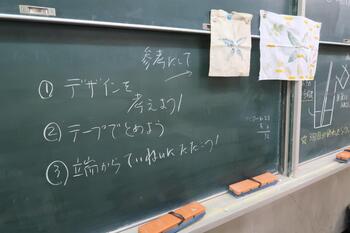 参考にして
① デザインを
考えよう!
② テープでとめよう
③ 端からていねいにたたこう!